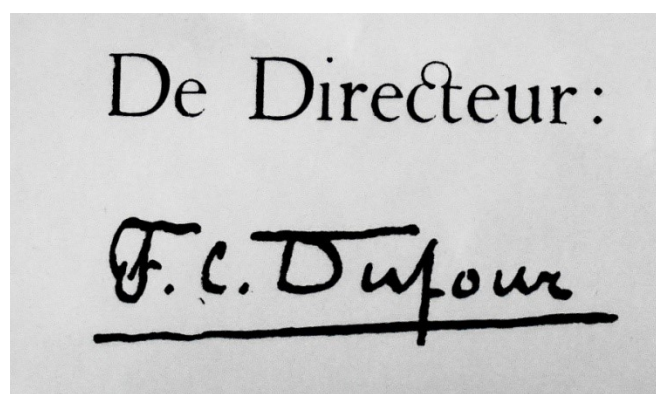 De Directeur:
F. C. Dufour